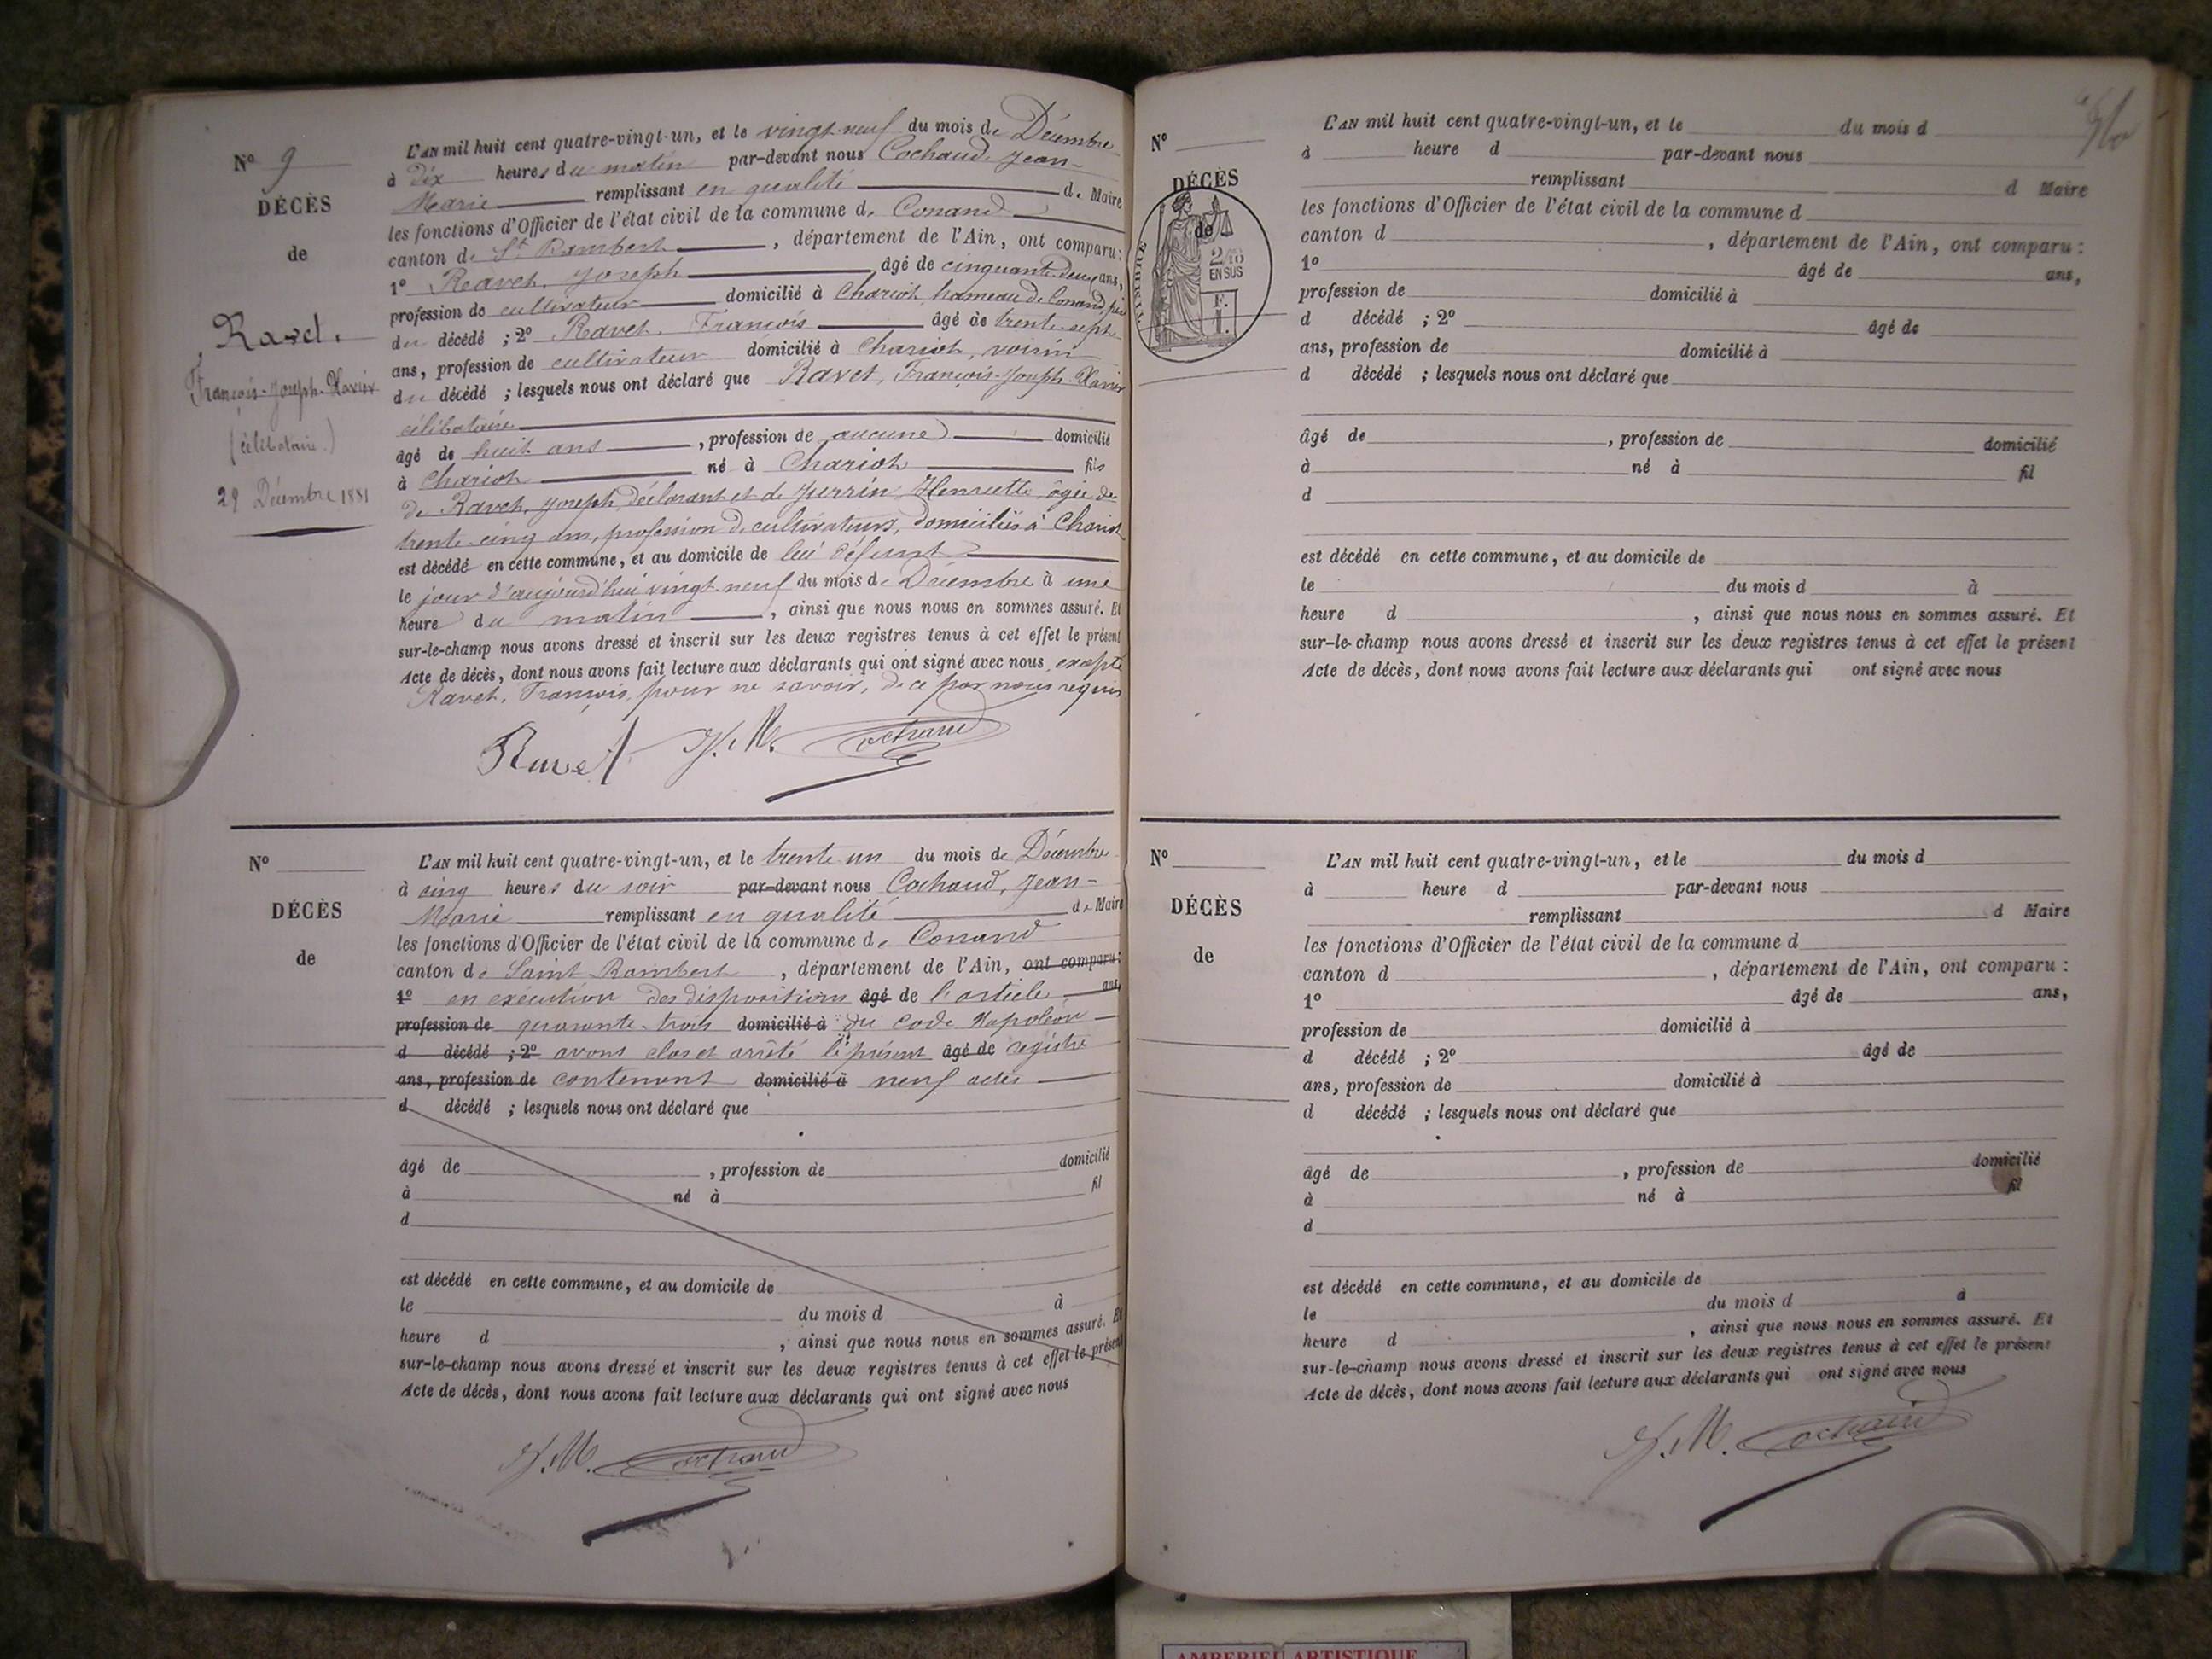 N° 9
DÉCÈS
de
Ravet.
François-Joseph-Xavier
(célibataire)
29 Décembre 1881
L'AN mil huit cent quatre-vingt-un, et le vingt-neuf du mois de Décembre
à dix heures du matin par-devant nous Cochaud, Jean-
Marie remplissant en qualité de Maire
les fonctions d'Officier de l'état civil de la commune de Conand
canton de St Rambert, département de l'Ain, ont comparu:
1° Ravet, Joseph âgé de cinquante-deux ans,
profession de cultivateur domicilié à Chariot, hameau de Conand, père
du décédé ; 2° Ravet, François âgé de trente-sept
ans, profession de cultivateur domicilié à Chariot, voisin
du décédé ; lesquels nous ont déclaré que Ravet, François-Joseph-Xavier
célibataire
âgé de huit ans, profession de aucune domicilié
à Chariot né à Chariot fils
de Ravet, Joseph, déclarant et de Perrin Henriette âgée de
trente-cinq ans, profession de cultivateurs, domiciliés à Chariot
est décédé en cette commune, et au domicile de lui défunt
le jour d'aujourd'hui vingt-neuf du mois de Décembre à une
heure du matin, ainsi que nous nous en sommes assuré. Et
sur-le-champ nous avons dressé et inscrit sur les deux registres tenus à cet effet le présent
Acte de décès, dont nous avons fait lecture aux déclarants qui ont signé avec nous, excepté
Ravet, François, pour ne savoir, de ce par nous requis
Ravet J. M. Cochaud
N°
DÉCÈS
de
L'AN mil huit cent quatre-vingt-un, et le trente-un du mois de Décembre
à cinq heures du soir par-devant nous Cochaud, Jean-
Marie remplissant en qualité de Maire
les fonctions d'Officier de l'état civil de la commune de Conand
canton de Saint Rambert, département de l'Ain, ont comparu:
1° en exécution des dispositions âgé de l'article ans,
profession de quarante-trois domicilié à du Code Napoléon
d décédé ; 2° avons clos et arrêté le présent âgé de registre
ans, profession de contenant domicilié à neuf actes
d décédé ; lesquels nous ont déclaré que
âgé de , profession de domicilié
à né à fil
d
est décédé en cette commune, et au domicile de
le du mois d à
heure d , ainsi que nous nous en sommes assuré. Et
sur-le-champ nous avons dressé et inscrit sur les deux registres tenus à cet effet le présent
Acte de décès, dont nous avons fait lecture aux déclarants qui ont signé avec nous
J. M. Cochaud
N°
DÉCÈS
de
TIMBRE
2/10
EN SUS
F.
1.
L'AN mil huit cent quatre-vingt-un, et le du mois d
à heure d par-devant nous
remplissant d Maire
les fonctions d'Officier de l'état civil de la commune d
canton d , département de l'Ain, ont comparu :
1° âgé de ans,
profession de domicilié à
d décédé ; 2° âgé de
ans, profession de domicilié à
d décédé ; lesquels nous ont déclaré que
âgé de , profession de domicilié
à né à fil
d
est décédé en cette commune, et au domicile de
le du mois d à
heure d , ainsi que nous nous en sommes assuré. Et
sur-le-champ nous avons dressé et inscrit sur les deux registres tenus à cet effet le présent
Acte de décès, dont nous avons fait lecture aux déclarants qui ont signé avec nous
N°
DÉCÈS
de
L'AN mil huit cent quatre-vingt-un, et le du mois d
à heure d par-devant nous
remplissant d Maire
les fonctions d'Officier de l'état civil de la commune d
canton d , département de l'Ain, ont comparu :
1° âgé de ans,
profession de domicilié à
d décédé ; 2° âgé de
ans, profession de domicilié à
d décédé ; lesquels nous ont déclaré que
âgé de , profession de domicilié
à né à fil
d
est décédé en cette commune, et au domicile de
le du mois d à
heure d , ainsi que nous nous en sommes assuré. Et
sur-le-champ nous avons dressé et inscrit sur les deux registres tenus à cet effet le présent
Acte de décès, dont nous avons fait lecture aux déclarants qui ont signé avec nous
J. M. Cochaud
AMBERIEU ARTISTIQUE